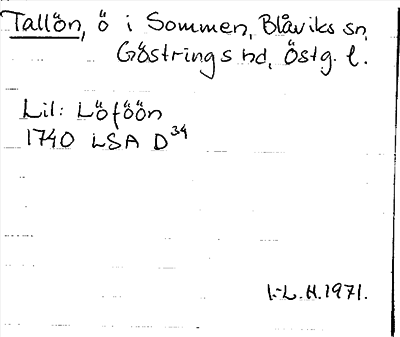 Tallön, ö i Sommen, Blåviks sn,
Göstrings hd, Östg. l.
Lil: Löföön
1740 LSA D34
I.-L. H. 1971.